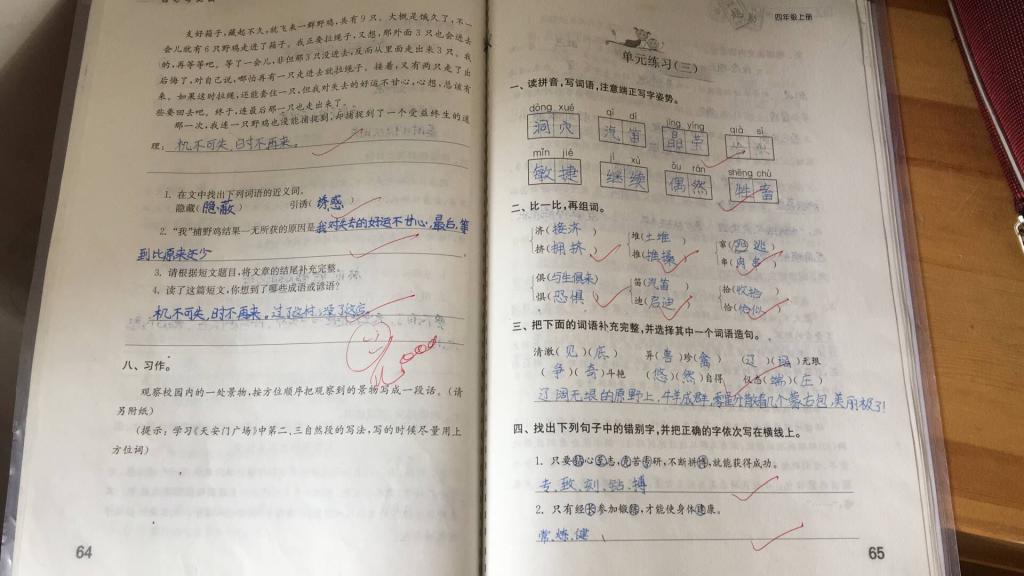 友好箱子,藏起不久,就飞来一群野鸡,共有9只。大概是饿久了,不一
会儿就有6只野鸡走进了箱子。我正要拉绳子,又想,那外面3只也会进去
的,再等等吧。等了一会儿,非但那3只没进去,反而从里面走出来3只。我
后悔了,对自己说,哪怕再有一只走进去就拉绳子。接着,又有两只走了出
来。如果这时拉绳,还能套住一只,但我对失去的好运不甘心,心想,总该有
些要回去吧。终于,连最后那一只也走出来了。
那一次,我连一只野鸡也没能捕捉到,却捕捉到了一个受益终生的道
理:机不可失、时不再来。
1. 在文中找出下列词语的近义词。
隐藏(隐蔽) 引诱(诱惑)
2. “我”捕野鸡结果一无所获的原因是我对失去的好运不甘心,最后,等
到比原来还少
3. 请根据短文题目,将文章的结尾补充完整。
4. 读了这篇短文,你想到了哪些成语或谚语?
机不可失,时不再来。过了这村,没了这店
八、习作。
观察校园内的一处景物,按方位顺序把观察到的景物写成一段话。(请
另附纸)
(提示:学习《天安门广场》中第二、三自然段的写法,写的时候尽量用上
方位词)
64
四年级上册
单元练习(三)
一、读拼音,写词语,注意端正写字姿势。
dòng xué qì dí jīng yíng qià sì
洞穴 汽笛 晶莹 恰似
mǐn jié jì xù ǒu rán shēng chù
敏捷 继续 偶然 牲畜
二、比一比,再组词。
济(接济) 堆(土堆) 窜(四逃)
挤(拥挤) 推(推搡) 串(肉串)
俱(与生俱来) 笛(汽笛) 拾(收拾)
惧(恐惧) 迪(启迪) 恰(恰似)
三、把下面的词语补充完整,并选择其中一个词语造句。
清澈(见)(底) 异(兽)珍(禽) (辽)(阔)无垠
(争)(奇)斗艳 (悠)(然)自得 仪态(端)(庄)
辽阔无垠的原野上,牛羊成群,零星分散着几个蒙古包,美丽极了!
四、找出下列句子中的错别字,并把正确的字依次写在横线上。
1. 只要
专、致、刻、钻、搏
2. 只有经长参加锻
常、炼、健
65